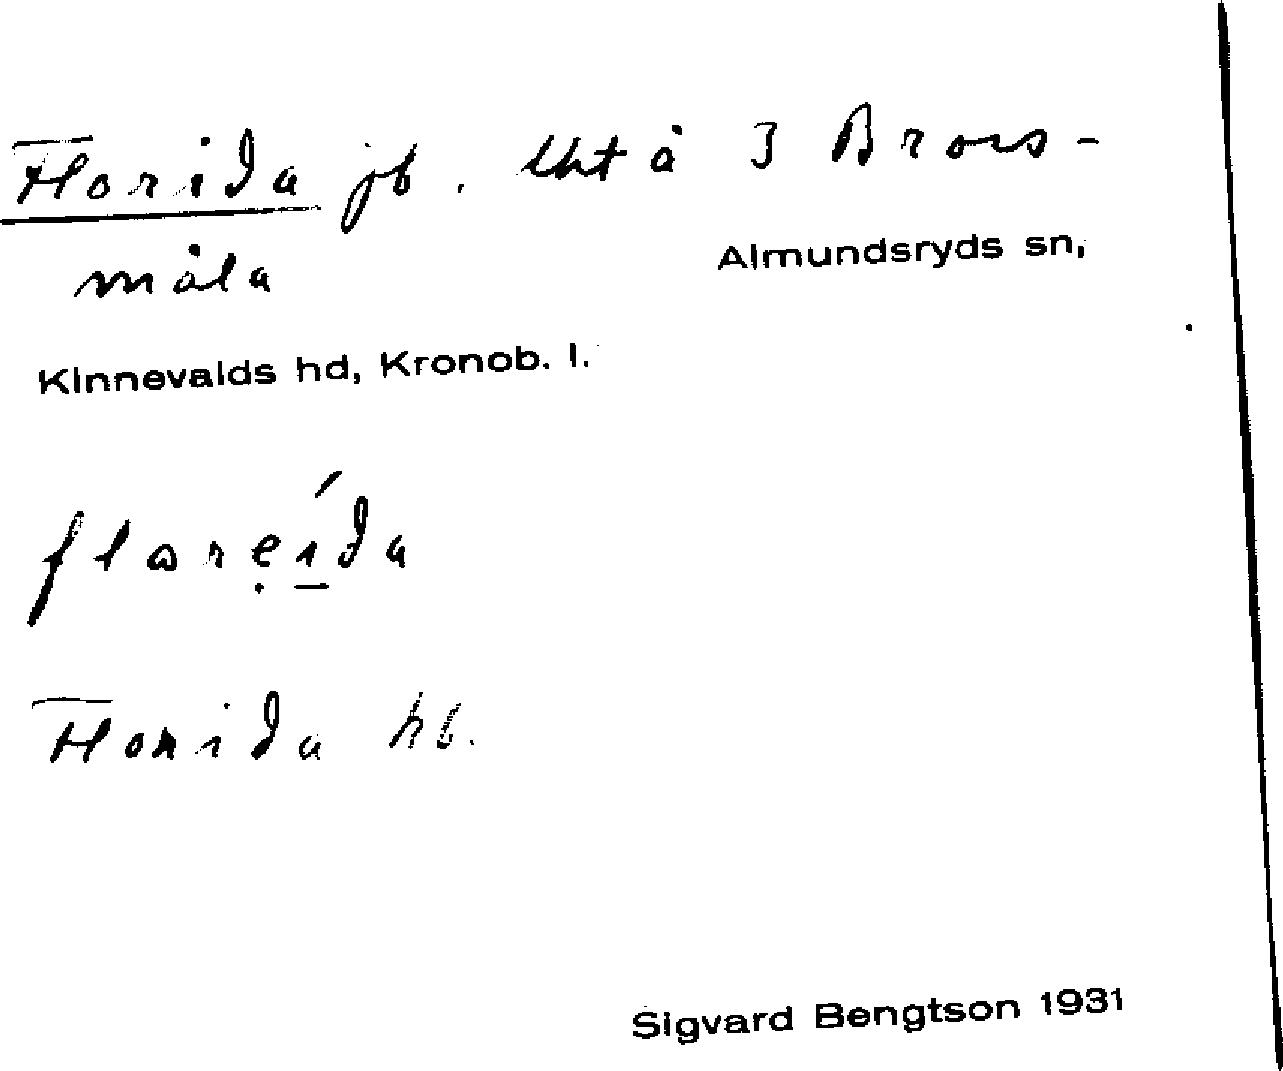 Florida jb. lht å 3 Brors-
måla
Almundsryds sn,
Kinnevalds hd, Kronob. l.
Florida hb.
Sigvard Bengtson 1931